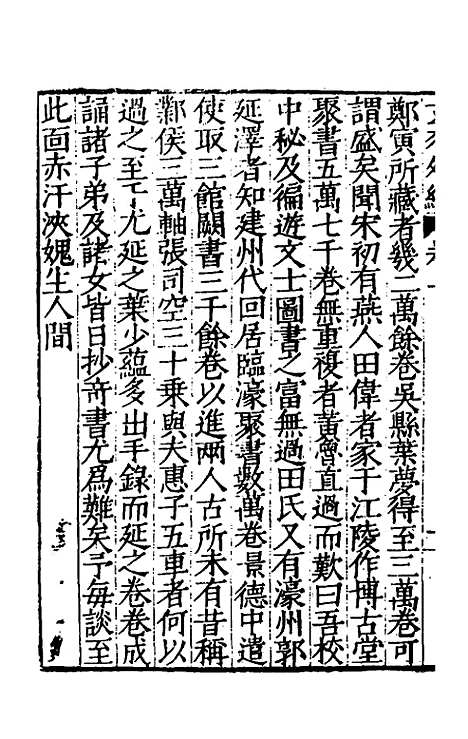 鄭寅所藏者幾二萬餘卷吳縣葉夢得至三萬卷可
謂盛矣聞宋初有燕人田偉者家于江陵作博古堂
聚書五萬七千卷無重複者黃魯直過而歎曰吾校
中秘及徧遊文士圖書之富無過田氏又有濠州郭
延澤者知建州代回居臨濠聚書數萬卷景德中遣
使取三館闕書三千餘卷以進兩人古所未有昔稱
鄴侯三萬軸張司空三十乗與夫惠子五車者何以
過之至于尤延之葉少蘊多出手錄而延之卷卷成
誦諸子弟及諸女皆日抄竒書尤爲難矣予每談至
此面赤汗浹媿生人間